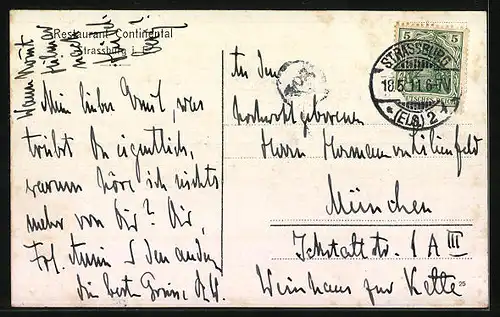 Restaurant Continental
Strassburg i. E.
Mein lieber Ernst, was
treibst Du eigentlich,
warum höre ich nichts
mehr von Dir? Dir,
Frl. u. den andern
die besten Grüsse
An den
hochwohlgeborenen
Herrn Hermann von Lilienfeld
München
Ickstattstr. 1 A III
Weinhaus zur Kette
25
5 5
STRASSBURG
18.5.11.6-7N
* (ELS.) 2 *